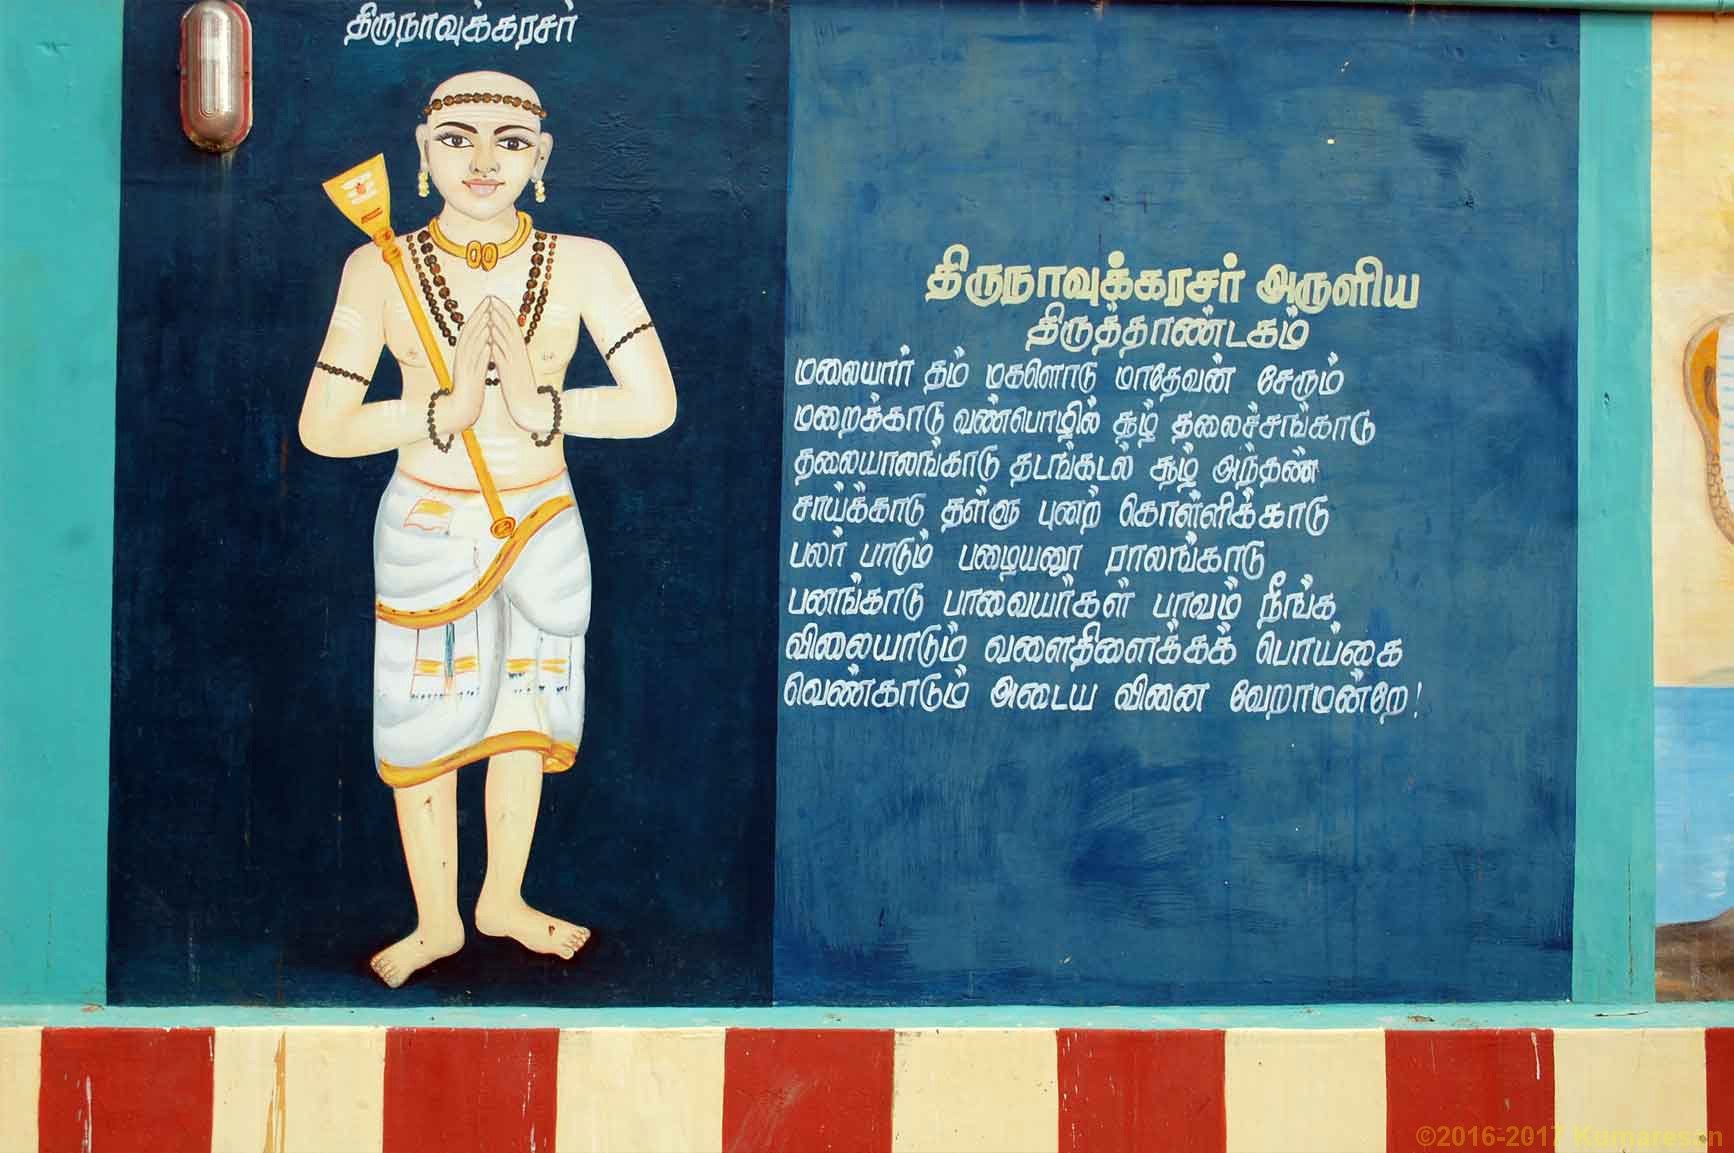 திருநாவுக்கரசர்
திருநாவுக்கரசர் அருளிய
திருத்தாண்டகம்
மலையார் தம் மகளொடு மாதேவன் சேரும்
மறைக்காடு வண்பொழில் சூழ் தலைச்சங்காடு
தலையாலங்காடு தடங்கடல் சூழ் அந்தண்
சாய்க்காடு தள்ளு புனற் கொள்ளிக்காடு
பலர் பாடும் பழையனூ ராலங்காடு
பனங்காடு பாவையர்கள் பாவம் நீங்க
விலையாடும் வளைதிளைக்கக் பொய்கை
வெண்காடும் அடைய வினை வேறாமன்றே!
©2016-2017 Kumaresan